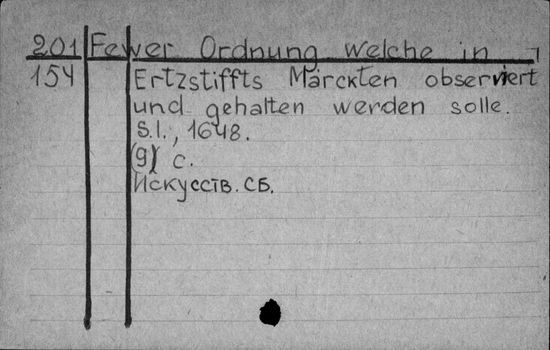 201 Fewer Ordnung welche in
154 Ertzstiffts Märckten observiert
und gehalten werden solle.
S.l., 1648.
(9) c.
Искусств. сб.